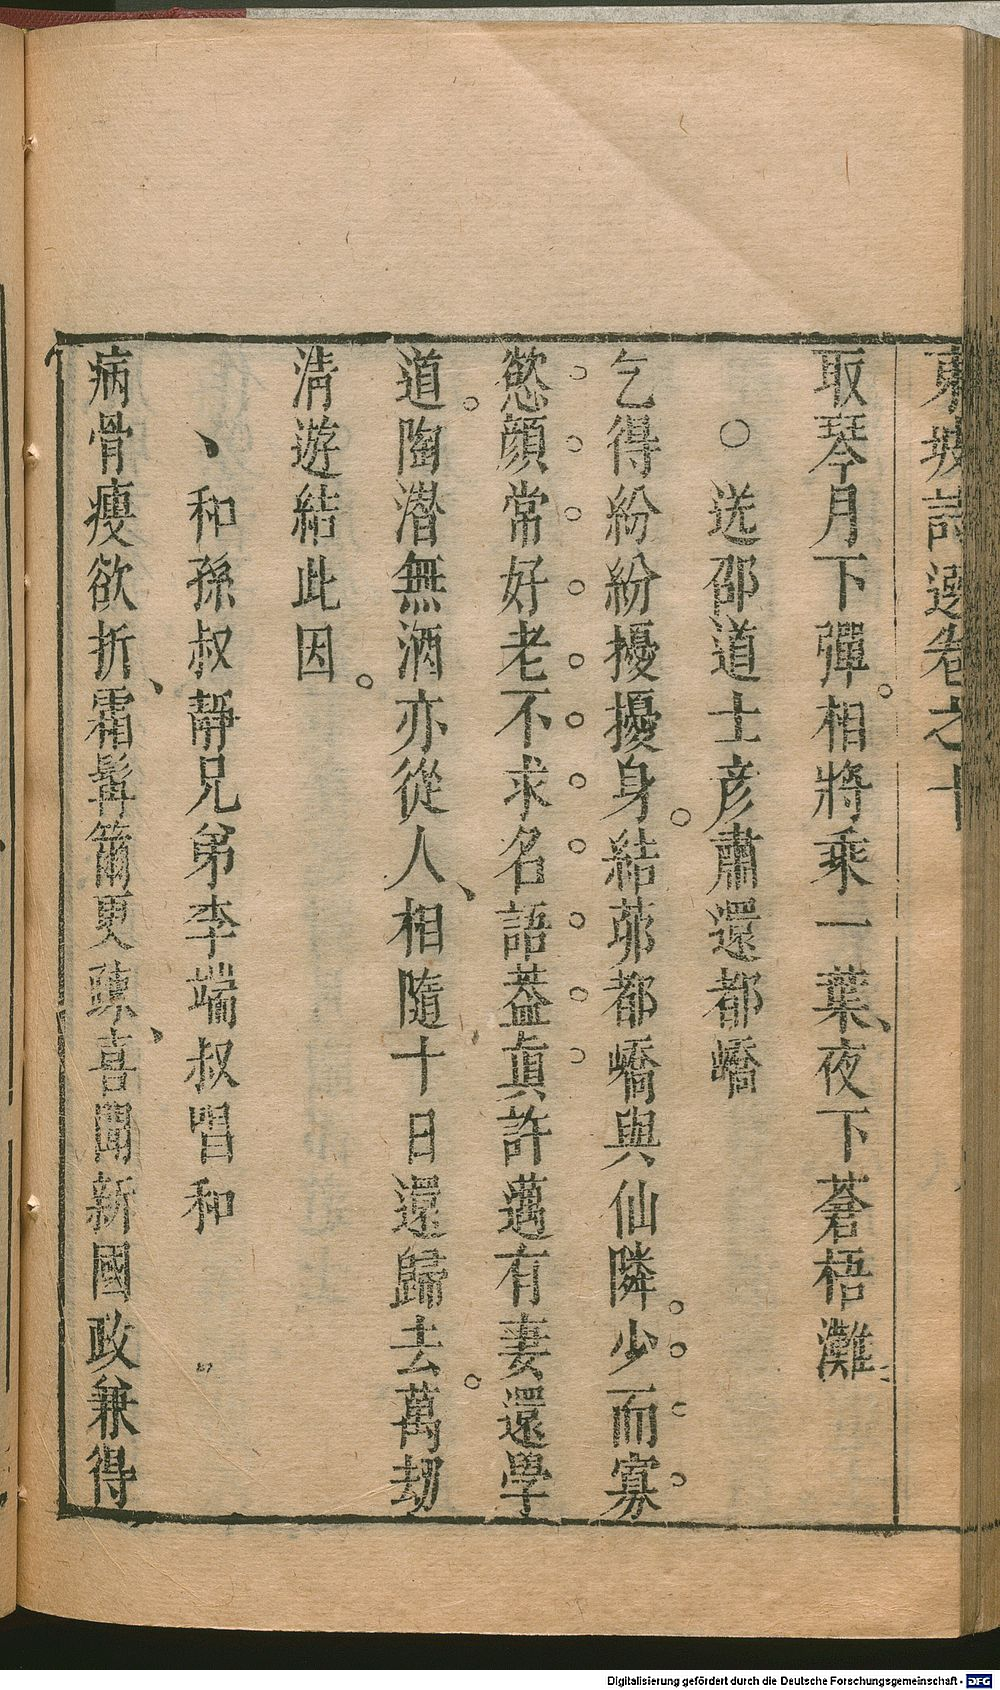 東坡詩選卷之十
取琴月下彈。相將乘一葉、夜下蒼梧灘
○送邵道士彥肅還都嶠
乞得紛紛擾擾身。結茆都嶠與仙隣。少而寡
慾顏常好老不求名語益眞許邁有妻還學
道。陶潛無酒亦從人、相隨十日還歸去。萬劫
清遊結此因。
、和孫叔靜兄弟李端叔唱和
病骨瘦欲折、霜髯籋更疎、喜聞新國政兼得
Digitalisierung gefördert durch die Deutsche Forschungsgemeinschaft - DFG